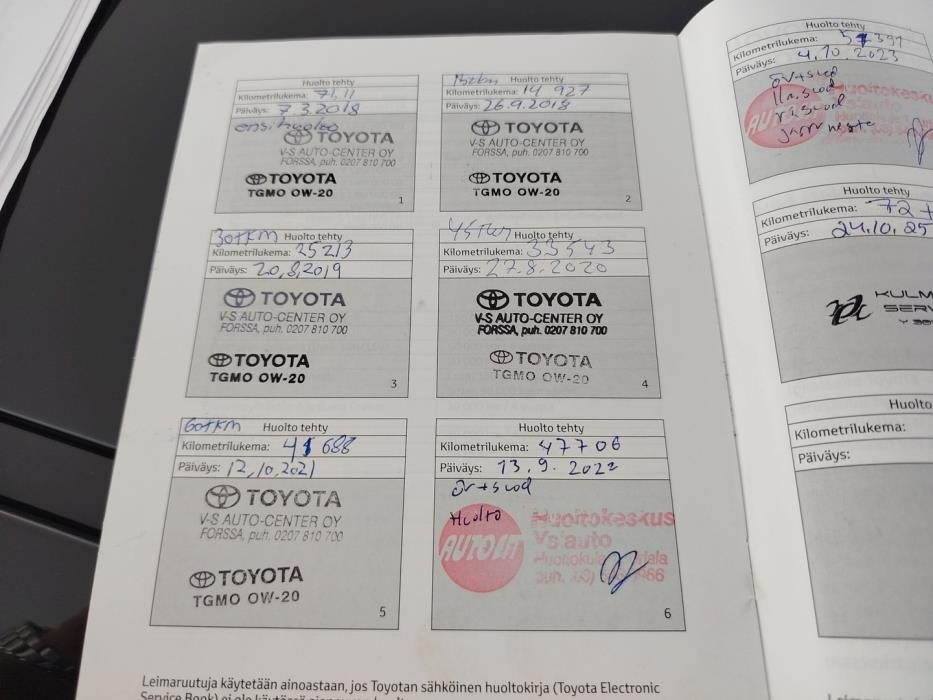 Huolto tehty
Kilometrilukema: 71,11
Päiväys: 7.3.2018
ensihuolto
TOYOTA
V-S AUTO-CENTER OY
FORSSA, puh. 0207 810 700
TOYOTA
TGMO OW-20
1
15tkm Huolto tehty
Kilometrilukema: 14 927
Päiväys: 26.9.2018
TOYOTA
V-S AUTO-CENTER OY
FORSSA, puh. 0207 810 700
TOYOTA
TGMO OW-20
2
30tKM Huolto tehty
Kilometrilukema: 25213
Päiväys: 20,8,2019
TOYOTA
V-S AUTO-CENTER OY
FORSSA, puh. 0207 810 700
TOYOTA
TGMO OW-20
3
Huolto tehty
Kilometrilukema: 33543
Päiväys: 27.8.2020
TOYOTA
V-S AUTO-CENTER OY
FORSSA, puh. 0207 810 700
TOYOTA
TGMO OW-20
4
60tKM Huolto tehty
Kilometrilukema: 41 688
Päiväys: 12,10,2021
TOYOTA
V-S AUTO-CENTER OY
FORSSA, puh. 0207 810 700
TOYOTA
TGMO OW-20
5
Huolto tehty
Kilometrilukema: 47706
Päiväys: 13.9.2022
öv+suod
Huolto
AUTOIT
Huoltokeskus
Vs auto
puh.
6
Leimaruutuja käytetään ainoastaan, jos Toyotan sähköinen huoltokirja (Toyota Electronic
Service Book) ei ole
Huolto tehty
Kilometrilukema: 57391
Päiväys: 4.10.2023
öv+suod
Iln.suod
rs.suod
jarruneste
Huoltokesku
Vs auto
Huolto tehty
Kilometrilukema: 72t
Päiväys: 24.10.25
KULM
SERV
Huolto
Kilometrilukema:
Päiväys: